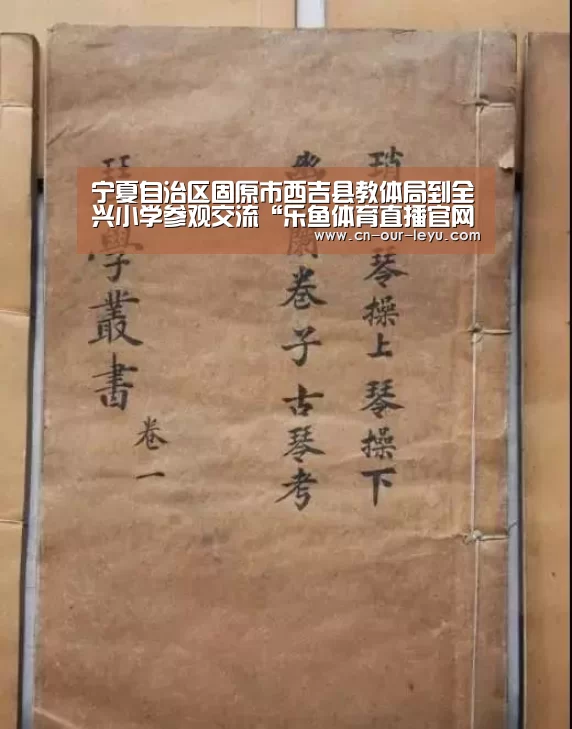 宁夏自治区固原市西吉县教体局到全
兴小学参观交流“乐鱼体育直播官网
www.cn-our-leyu.com
琴操上 琴操下
卷子古琴考
學叢書
卷一